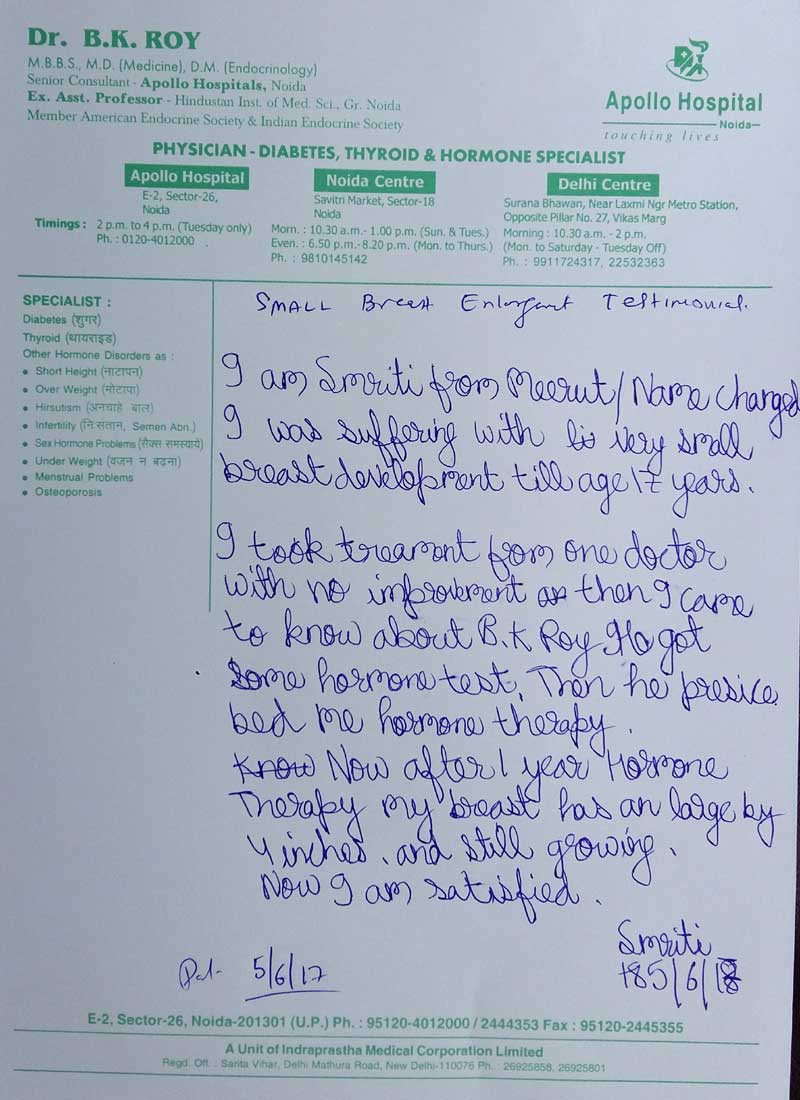 Dr. B.K. ROY
M.B.B.S., M.D. (Medicine), D.M. (Endocrinology)
Senior Consultant - Apollo Hospitals, Noida
Ex. Asst. Professor - Hindustan Inst. of Med. Sci., Gr. Noida
Member American Endocrine Society & Indian Endocrine Society
Apollo Hospital
Noida
touching lives
PHYSICIAN - DIABETES, THYROID & HORMONE SPECIALIST
Apollo Hospital
E-2, Sector-26,
Noida
Timings : 2 p.m. to 4 p.m. (Tuesday only)
Ph. : 0120-4012000
Noida Centre
Savitri Market, Sector-18
Noida
Morn. : 10.30 a.m.- 1.00 p.m. (Sun. & Tues.)
Even. : 6.50 p.m.-8.20 p.m. (Mon. to Thurs.)
Ph. : 9810145142
Delhi Centre
Surana Bhawan, Near Laxmi Ngr Metro Station,
Opposite Pillar No. 27, Vikas Marg
Morning : 10.30 a.m. - 2 p.m.
(Mon. to Saturday - Tuesday Off)
Ph. : 9911724317, 22532363
SPECIALIST :
Diabetes (शुगर)
Thyroid (थायराइड)
Other Hormone Disorders as :
• Short Height (नाटापन)
• Over Weight (मोटापा)
• Hirsutism (अनचाहे बाल)
• Infertility (नि:सतान, Semen Abn.)
• Sex Hormone Problems (सैक्स समस्यायें)
• Under Weight (वजन न बढ़ना)
• Menstrual Problems
• Osteoporosis
SMALL Breast Enlargant Testimonial.
I am Smriti from Meerut/Name changed
I was suffering with very small
breast development till age 17 years.
I took treament from one doctor
with no improvement then I came
to know about B.K Roy. He got
some hormone test. Then he presice
bed me hormone therapy.
Know Now after 1 year Hormone
Therapy my breast has an large by
4 inches. and still growing.
Now I am satisfied.
Smriti
5/6/17
E-2, Sector-26, Noida-201301 (U.P.) Ph. : 95120-4012000 / 2444353 Fax : 95120-2445355
A Unit of Indraprastha Medical Corporation Limited
Regd. Off. : Sarita Vihar, Delhi Mathura Road, New Delhi-110076 Ph. : 26925858, 26925801